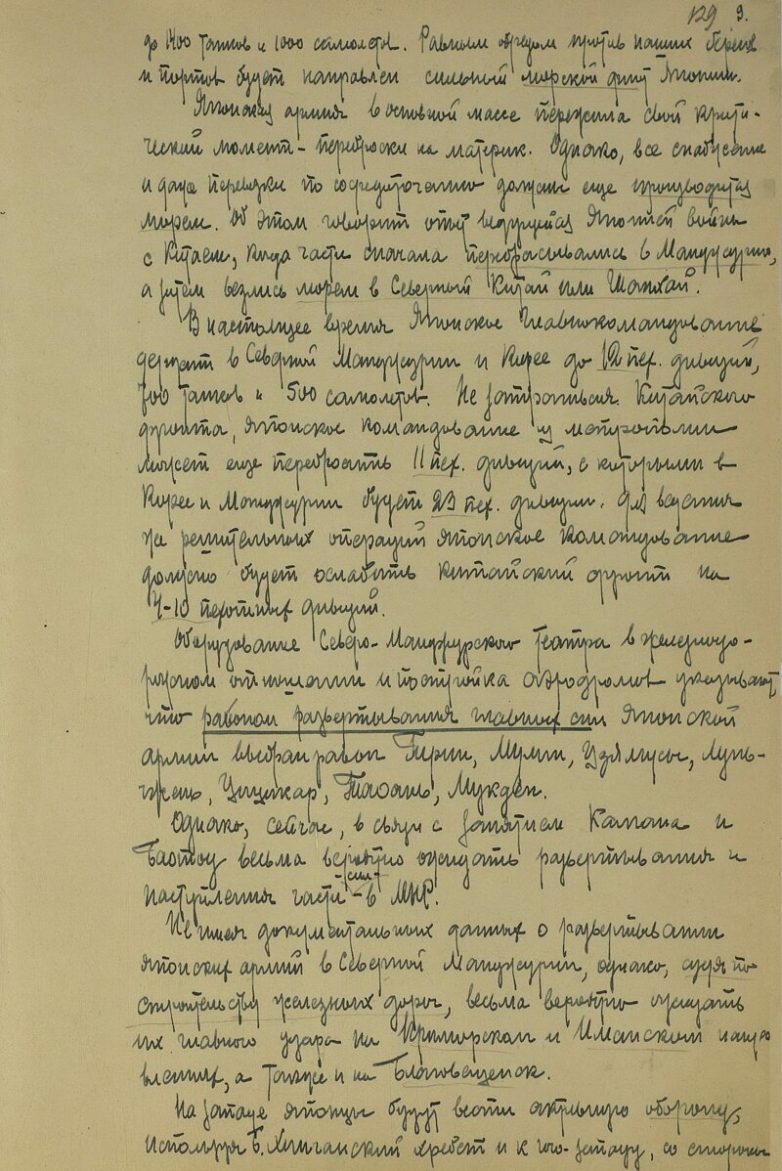 129 9.
до 1400 танков и 1000 самолетов. Равным образом против наших берегов
и портов будет направлен сильный морской флот Японии.
Японская армия в основной массе пережила свой крити-
ческий момент – переброски на материк. Однако, все снабжение
и даже перевозки по сосредоточению должны еще производиться
морем. Об этом говорит опыт ведущейся Японией войны
с Китаем, когда части сначала перебрасывались в Манджурию,
а затем везлись морем в Северный Китай или Шанхай.
В настоящее время Японское Главнокомандование
держит в Северной Манджурии и Корее до 12 пех. дивизий,
700 танков и 500 самолетов. Не затрагивая Китайского
фронта, японское командование из метрополии
может еще перебросить 11 пех. дивизий, с которыми в
Корее и Манджурии будет 23 пех. дивизии. Для ведения
же решительных операций японское командование
должно будет ослабить китайский фронт на
7-10 пехотных дивизий.
Оборудование Северо-Манджурского театра в железнодо-
рожном отношении и постройка аэродромов указывают,
что районом развертывания главных сил Японской
армии выбран район Гирин, Мулин, Цзямусы, Лунь-
чжень, Цицикар, Таоань, Мукден.
Однако, сейчас, в связи с занятием Калгана и
Баотоу весьма вероятно ожидать развертывания и
наступления части сил в МНР.
Не имея документальных данных о развертывании
японских армий в Северной Манджурии, однако, судя по
строительству железных дорог, весьма вероятно ожидать
их главного удара на Приморском и Иманском напра
влениях, а также и на Благовещенск.
На западе японцы будут вести активную оборону,
используя Б. Хинганский хребет и к юго-западу, со стороны